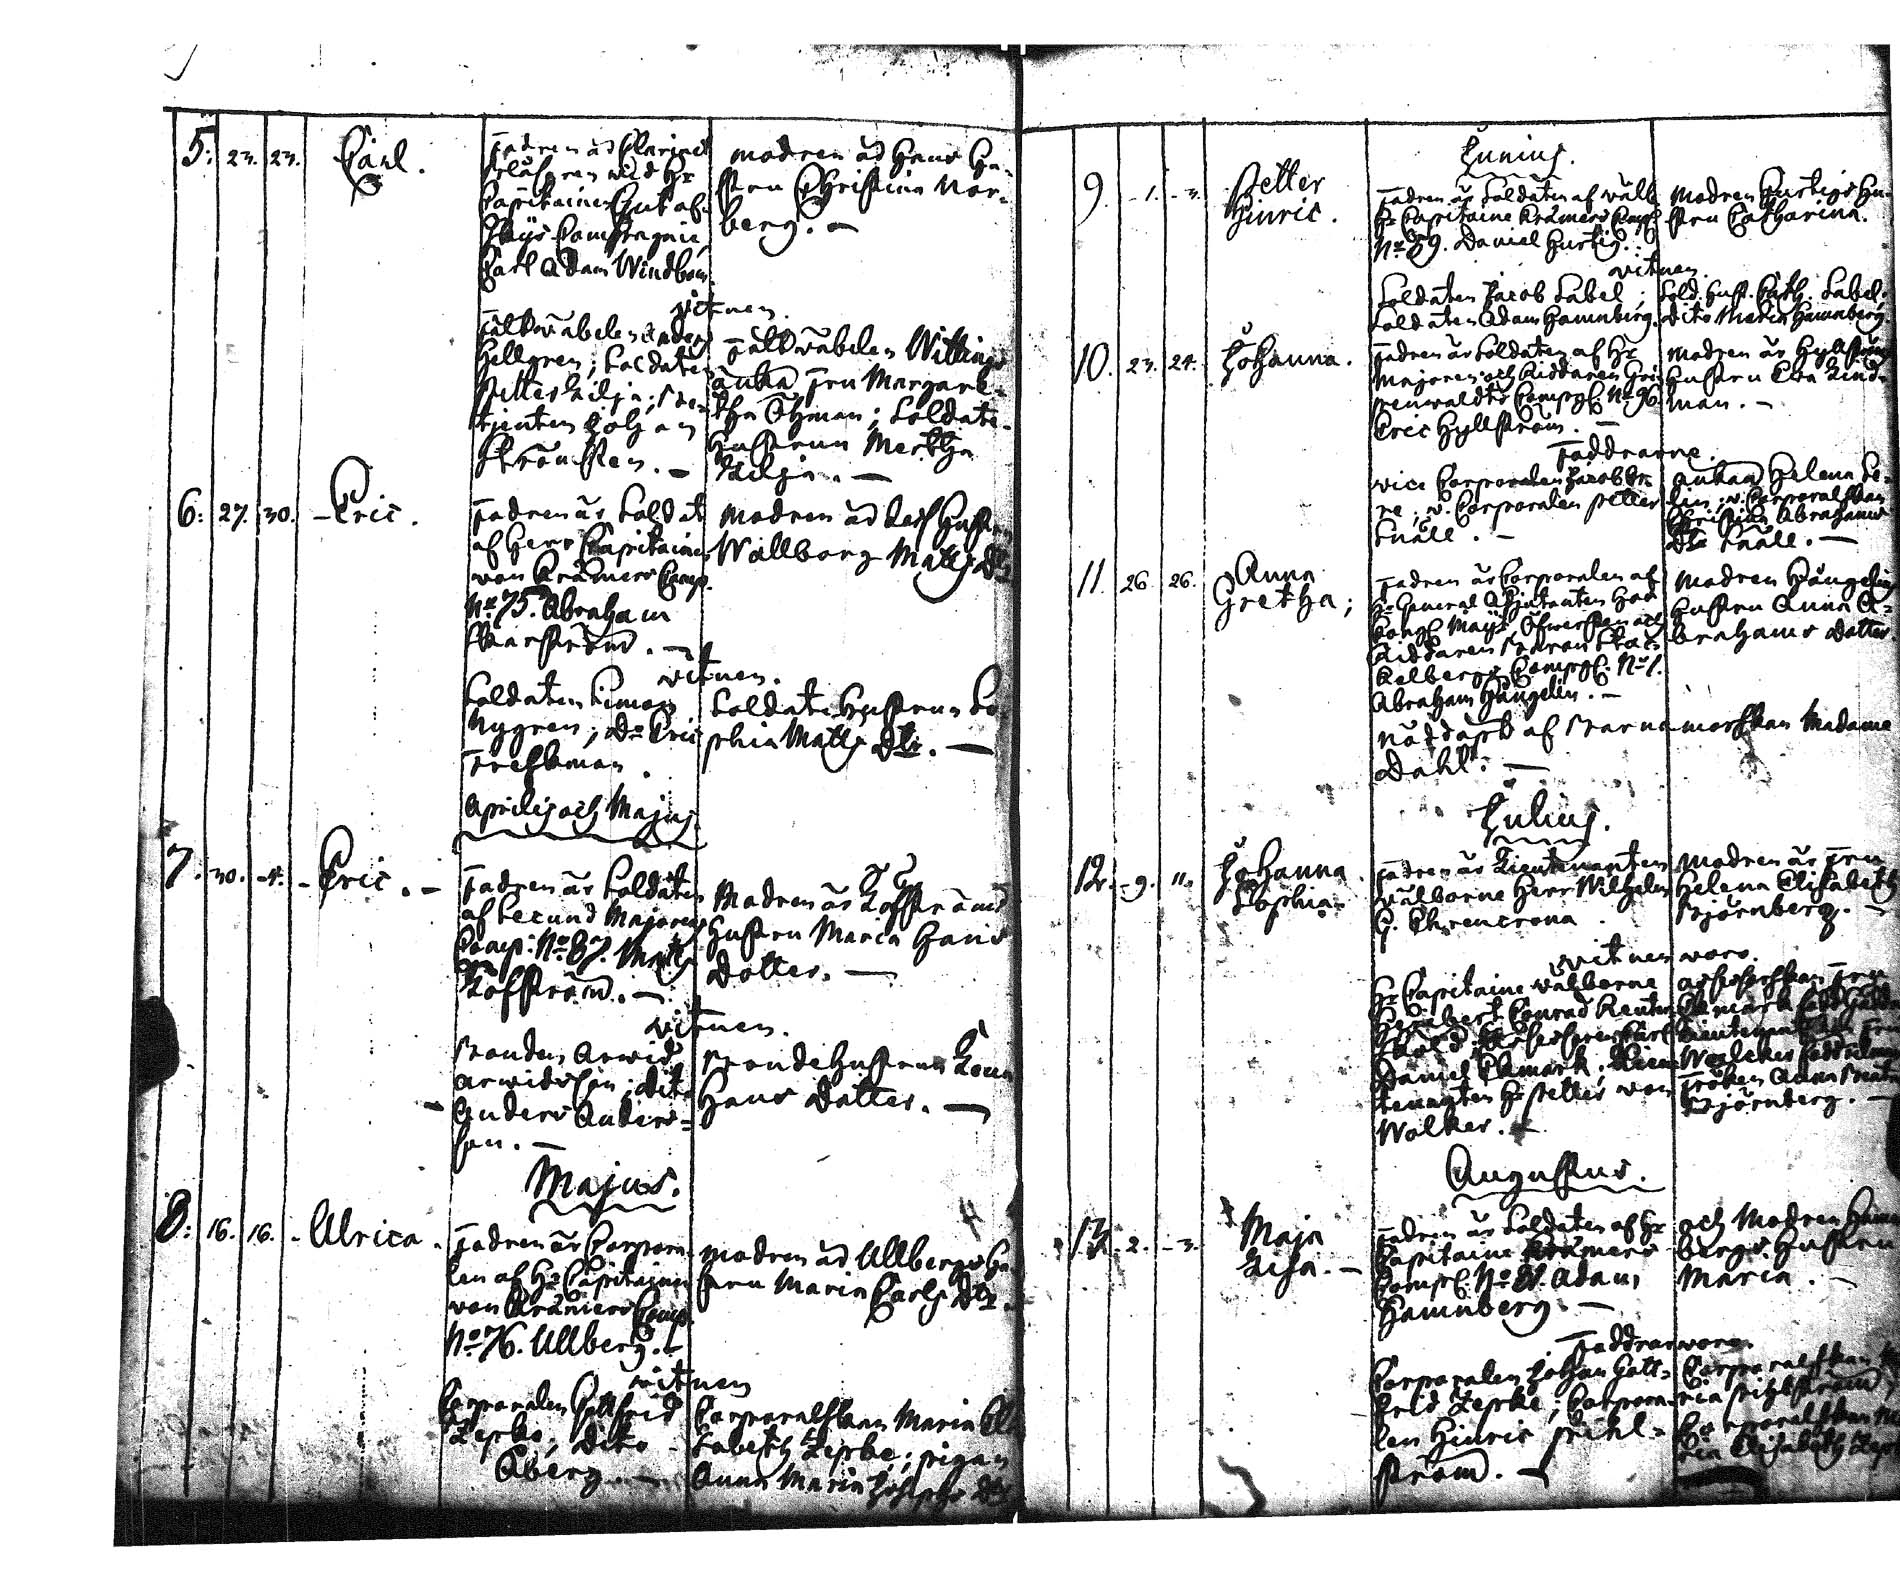 5: 23. 23. Carl.
Fadren är Clarinet
blåsaren wid Hr
Capitaine Gutof-
Compagnie,
Carl Adam Windbom
modren är Hans Hu-
stru Christina Nor-
berg. –
vitnen.
Fältväbelen
Hellgren; Soldaten
Petter Lilja;
tjenten Johan
Fältväbelen Willings
änka Fru Margare-
tha Öhman; Soldate-
Hustrun Mertha
Lilja. –
6: 27. 30. – Eric.
Fadren är Soldat
af Herr Capitaine
von Kræmers Comp.
No 75. Abraham
Modren är dess Hustru
Wallborg Matts Dtr
vitnen.
Soldaten Simon
Nygren; Do Eric
Freskman.
Soldate Hustrun So
phia Matts Dtr. –
Aprilis och Majus
7. 30. –4. – Eric. –
Fadren är Soldaten
af Secund Majorens
Comp: No 87. Matts
Löfström. –
Modren är Löfströms
Hustru Maria Hans
Dotter. –
vitnen.
Bonden Arwid
Arwidsson; dito
Anders Anders-
son. –
Bondehustrun
Hans Dotter. –
Majus.
8: 16. 16. – Ulrica.
Fadren är Corpora-
len af Hr Capitaine
von Kræmers Comp.
No 76. Ullberg. –
modren är Ullbergs Hu-
stru Maria Carls Dtr.
vitnen
Corporalen Gottfrid
Lepke; Dito
Åberg. –
Corporalskan Maria Eli
sabeth Lepke; pigan
Anna Maria Josephs Dtr
Junius.
9. –1. –3. Petter
Hinric.
Fadren är Soldaten af wälb.
Hr Capitaine Kræmers Comp.
No 89. Daniel Hurtig.
Modren Hurtigs Hu-
stru Catharina.
vitnen.
Soldaten Jacob Sabel;
Soldaten Adam Hamnberg.
Sold. Hust. Cath. Sabel;
dito Maria Hamnberg.
10. 23. 24. Johanna.
Fadren är Soldaten af Hr
Majoren och Riddaren Gri-
penwaldts Compg. No 96.
Eric Hyllström. –
Modren är Hyllströms
Hustru Elsa Lind-
man. –
Faddrarne.
vice Corporalen Jacob
v. Corporalen Petter
Snäll. –
Änkan Helena
v. Corporalskan
Christina Abrahams
Dtr Snäll. –
11. 26. 26. Anna
Gretha;
Fadren är Corporalen af
Hr General Adjutanten hos
Kongl Mayt Öfwersten och
Riddaren Baron Stac-
kelbergs Compg. No 1.
Abraham Hängelin. –
Modren Hängelins
Hustru Anna A-
brahams Dotter
nöddöpt af Barnamorskan Madame
Dahl. –
Julius.
12. –9. 11. Johanna
Sophia.
Fadren är Lieutenanten
wälborne Herr Wilhelm
G. Ehrencrona.
Modren är Fru
Helena Elisabeth
Björnberg. –
vitnen woro.
Hr Capitaine wälborne
Conrad Reuter
Daniel Ekmark; Lieu-
tenanten Hr Petter von
Wolker. –
Fröken Anna
Björnberg. –
Augustus.
13. –2. –3. Maja
Lisa. –
Fadren är Soldaten af Hr
Capitaine Kræmers
Comp. No 81. Adam
Hamnberg. –
och Modren Hamn
bergs Hustru
Maria. –
Faddrar woro.
Corporalen Johan Gott-
frid Lepke; Corpora-
len Hinric Pihl-
ström. –
Corporalskan Ma
ria Pihlström;
Corporalskan Ma
ria Elisabeth Lepk